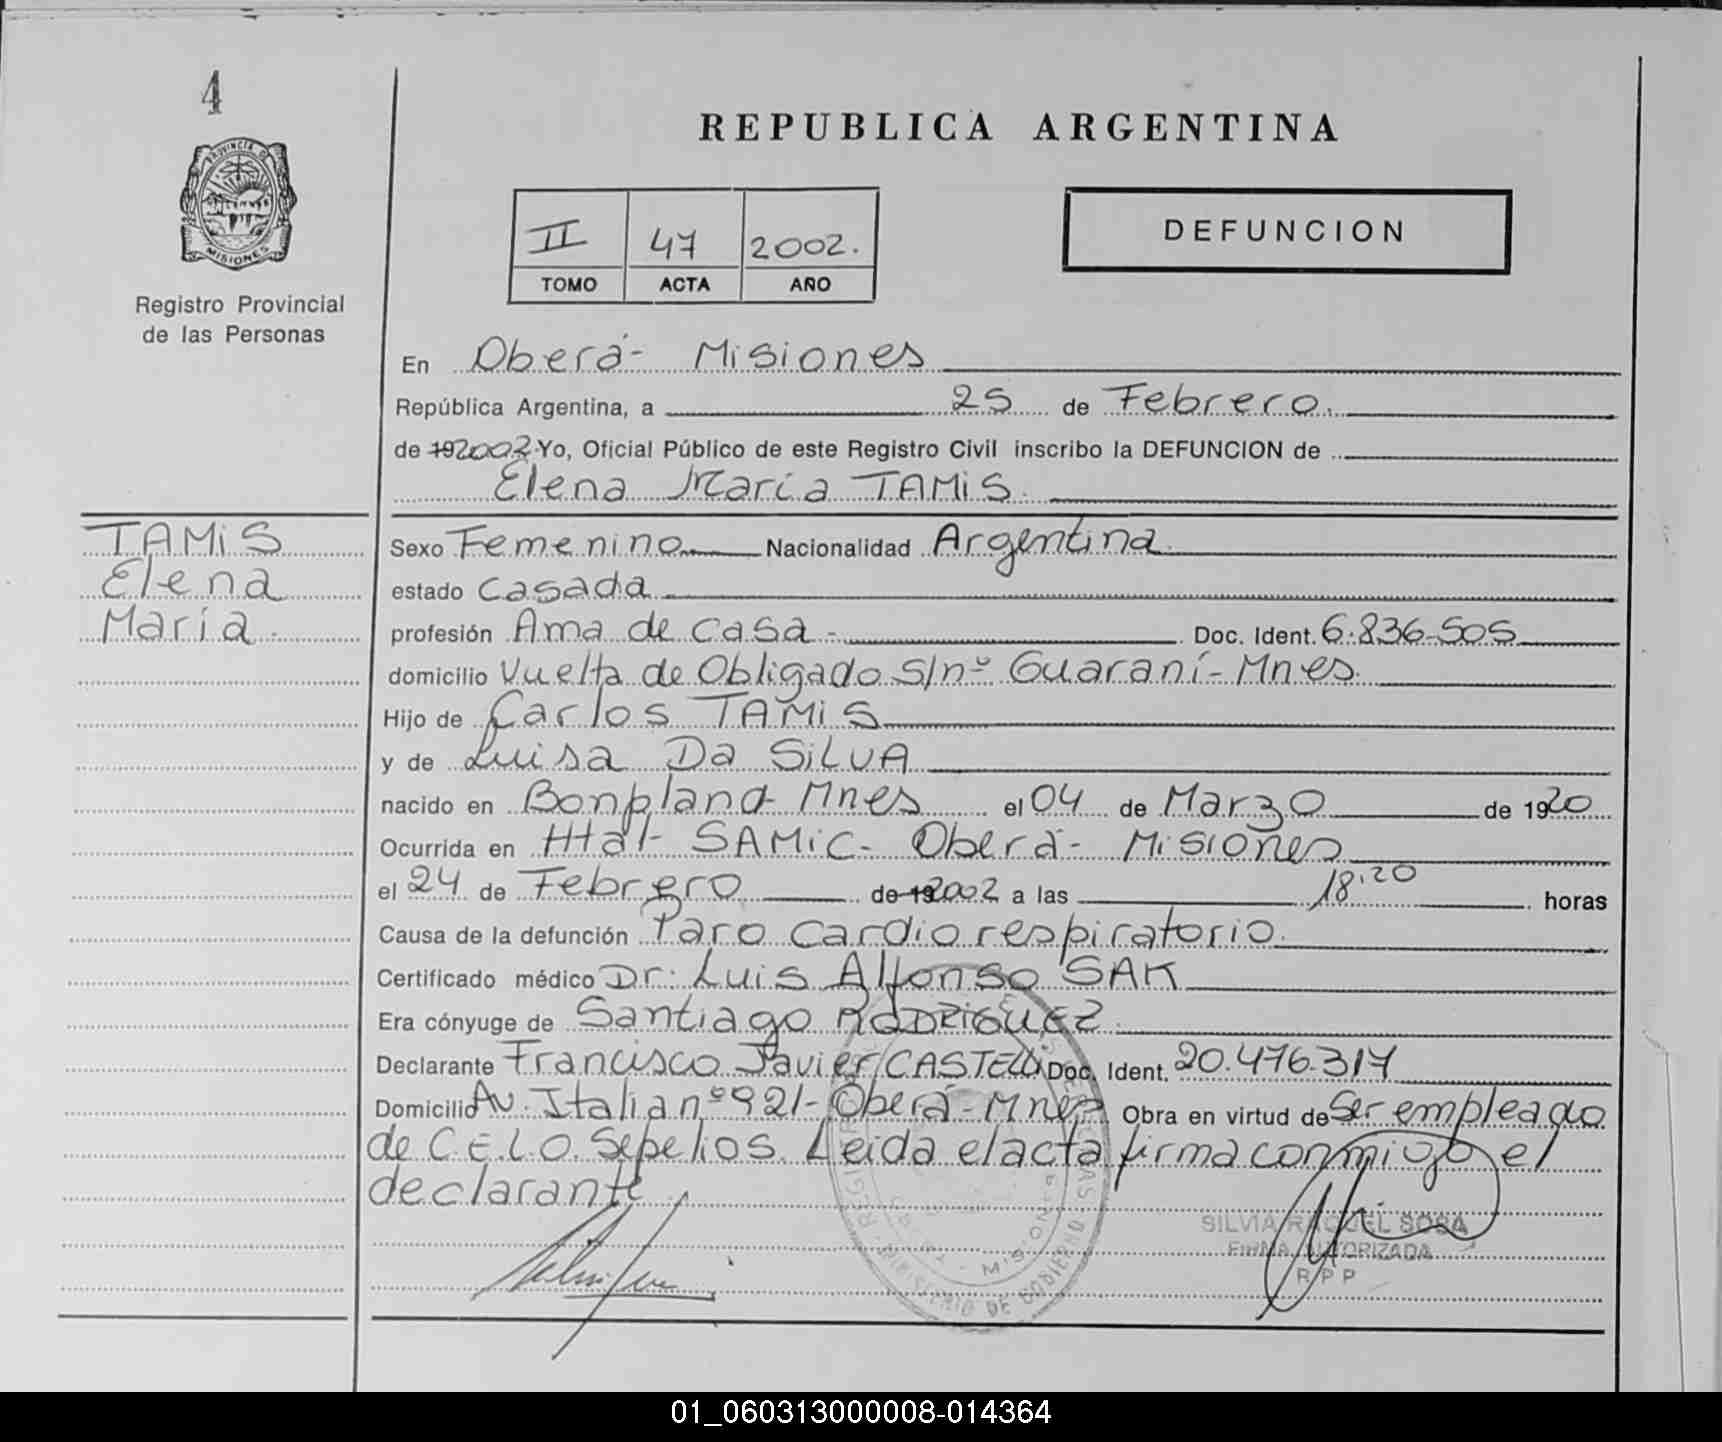 4
PROVINCIA DE
MISIONES
Registro Provincial
de las Personas
REPUBLICA ARGENTINA
II 47 2002.
TOMO ACTA AÑO
DEFUNCION
En Oberá- Misiones
República Argentina, a 25 de Febrero.
de 192002 Yo, Oficial Público de este Registro Civil inscribo la DEFUNCION de
Elena María TAMiS.
TAMiS
Elena
María.
Sexo Femenino Nacionalidad Argentina
estado Casada
profesión Ama de casa - Doc. Ident. 6.836.505
domicilio Vuelta de Obligado S/nº Guaraní- Mnes.
Hijo de Carlos TAMiS
y de Luisa Da SiLVA
nacido en Bonpland- Mnes el 04 de Marzo de 1920
Ocurrida en Htal- SAMiC- Oberá- Misiones
el 24 de Febrero de 192002 a las 18:20 horas
Causa de la defunción Paro Cardiorespiratorio.
Certificado médico Dr: Luis Alfonso SAK
Era cónyuge de Santiago RODRIGUEZ.
Declarante Francisco Javier CASTELLi Doc. Ident. 20.476.317
Domicilio Av. Italia nº 921- Oberá- Mnes Obra en virtud de Ser empleado
de C.E.L.O. Sepelios. Leida el acta firma conmigo el
declarante
SILVIA RAQUEL SOSA
FIRMA AUTORIZADA
R P P
MINISTERIO DE GOBIERNO
01_060313000008-014364